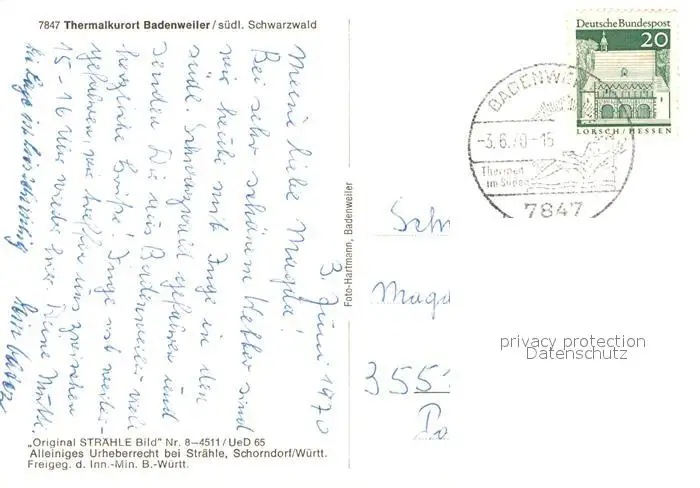 7847 Thermalkurort Badenweiler / südl. Schwarzwald
3. Juni 1970
Meine liebe Magda!
Bei sehr schönem Wetter sind
wir heute mit Inge in den
südl. Schwarzwald gefahren und
senden Dir aus Badenweiler viele
herzliche Grüße! Inge ist weiter-
gefahren wir treffen uns zwischen
15 - 16 Uhr wieder hier. Deine
Foto-Hartmann, Badenweiler
Deutsche Bundespost
20
LORSCH / HESSEN
BADENWEI
-3.6.70-15
Thermen
im Süde
7847
Magda
355
privacy protection
Datenschutz
„Original STRÄHLE Bild" Nr. 8-4511 / UeD 65
Alleiniges Urheberrecht bei Strähle, Schorndorf/Württ.
Freigeg. d. Inn.-Min. B.-Württ.